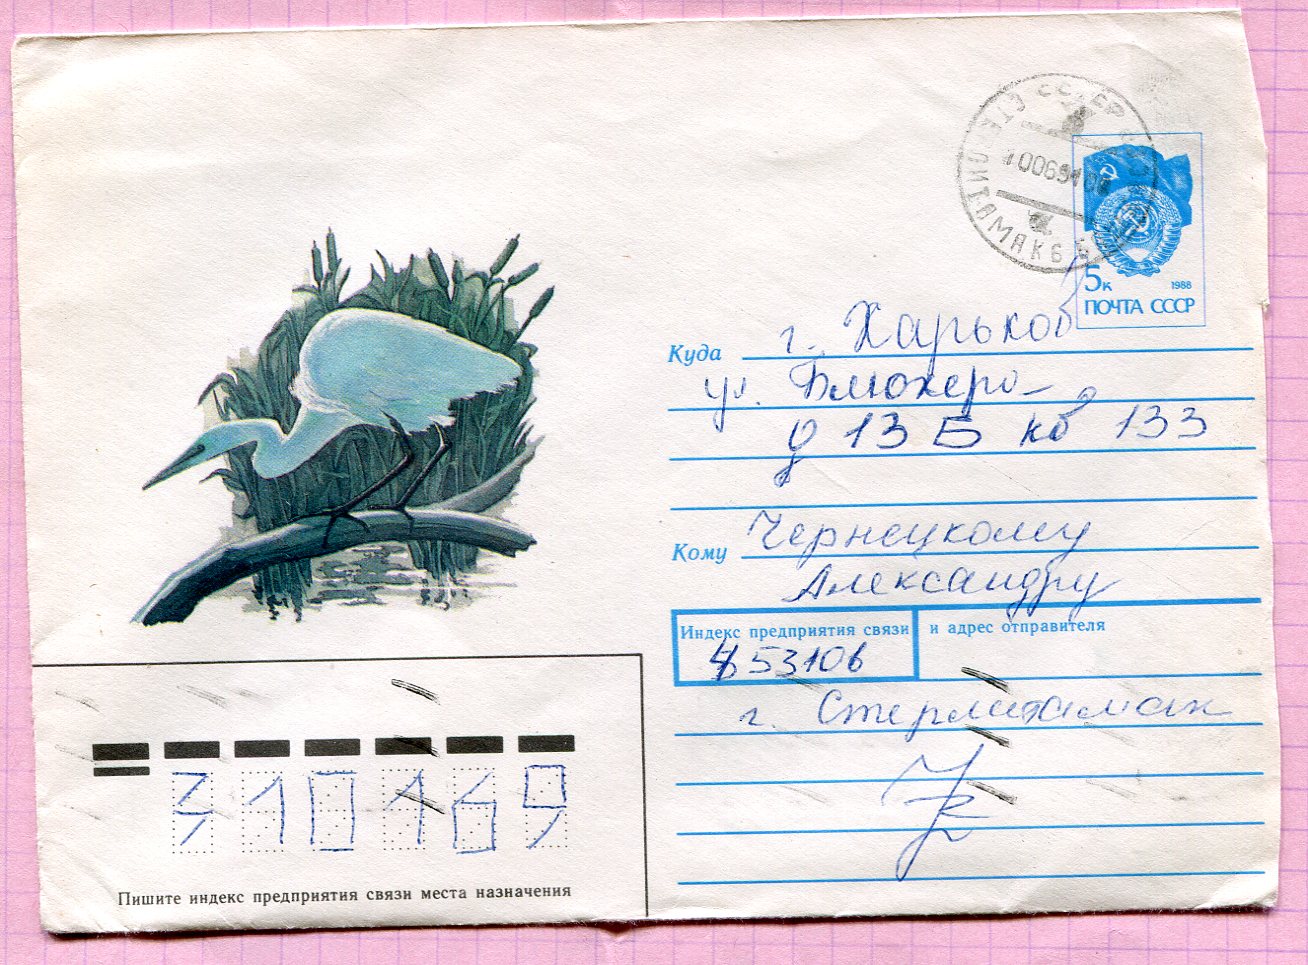 СССР
СТЕРЛИТАМАК 6
10069108
5к
1988
ПОЧТА СССР
Куда г. Харьков
ул. Блюхера
д 13 Б кв 133
Кому Чернецкому
Александру
Индекс предприятия связи и адрес отправителя
453106
г. Стерлитамак
310169
Пишите индекс предприятия связи места назначения